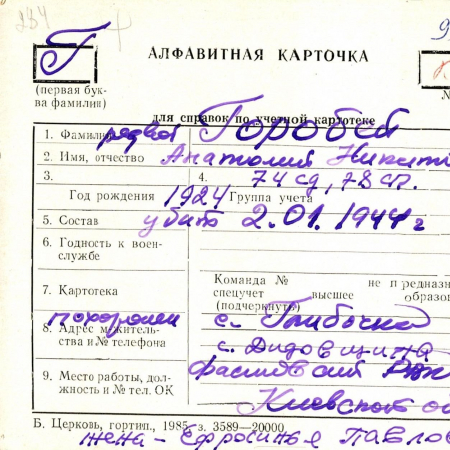 234
Г
9
АЛФАВИТНАЯ КАРТОЧКА
(первая бук-
ва фамилии)
№
для справок по учетной картотеке
1. Фамилия рядвой Горобей
2. Имя, отчество Анатолий Никит
3. 4. 74 сд, 78 сп.
Год рождения 1924 Группа учета
5. Состав убит 2.01.1944 г
6. Годность к воен-
службе
7. Картотека Команда № не предназн
спецучет высшее образо
(подчеркнуть)
похоронен с. Глибочка
8. Адрес м житель-
ства и № телефона с. Дидовщина
9. Место работы, дол-
жность и № тел. ОК Фастовский
Киевской о
Б. Церковь, гортип., 1985, з. 3589—20000.
жена - Ефросинья Павло